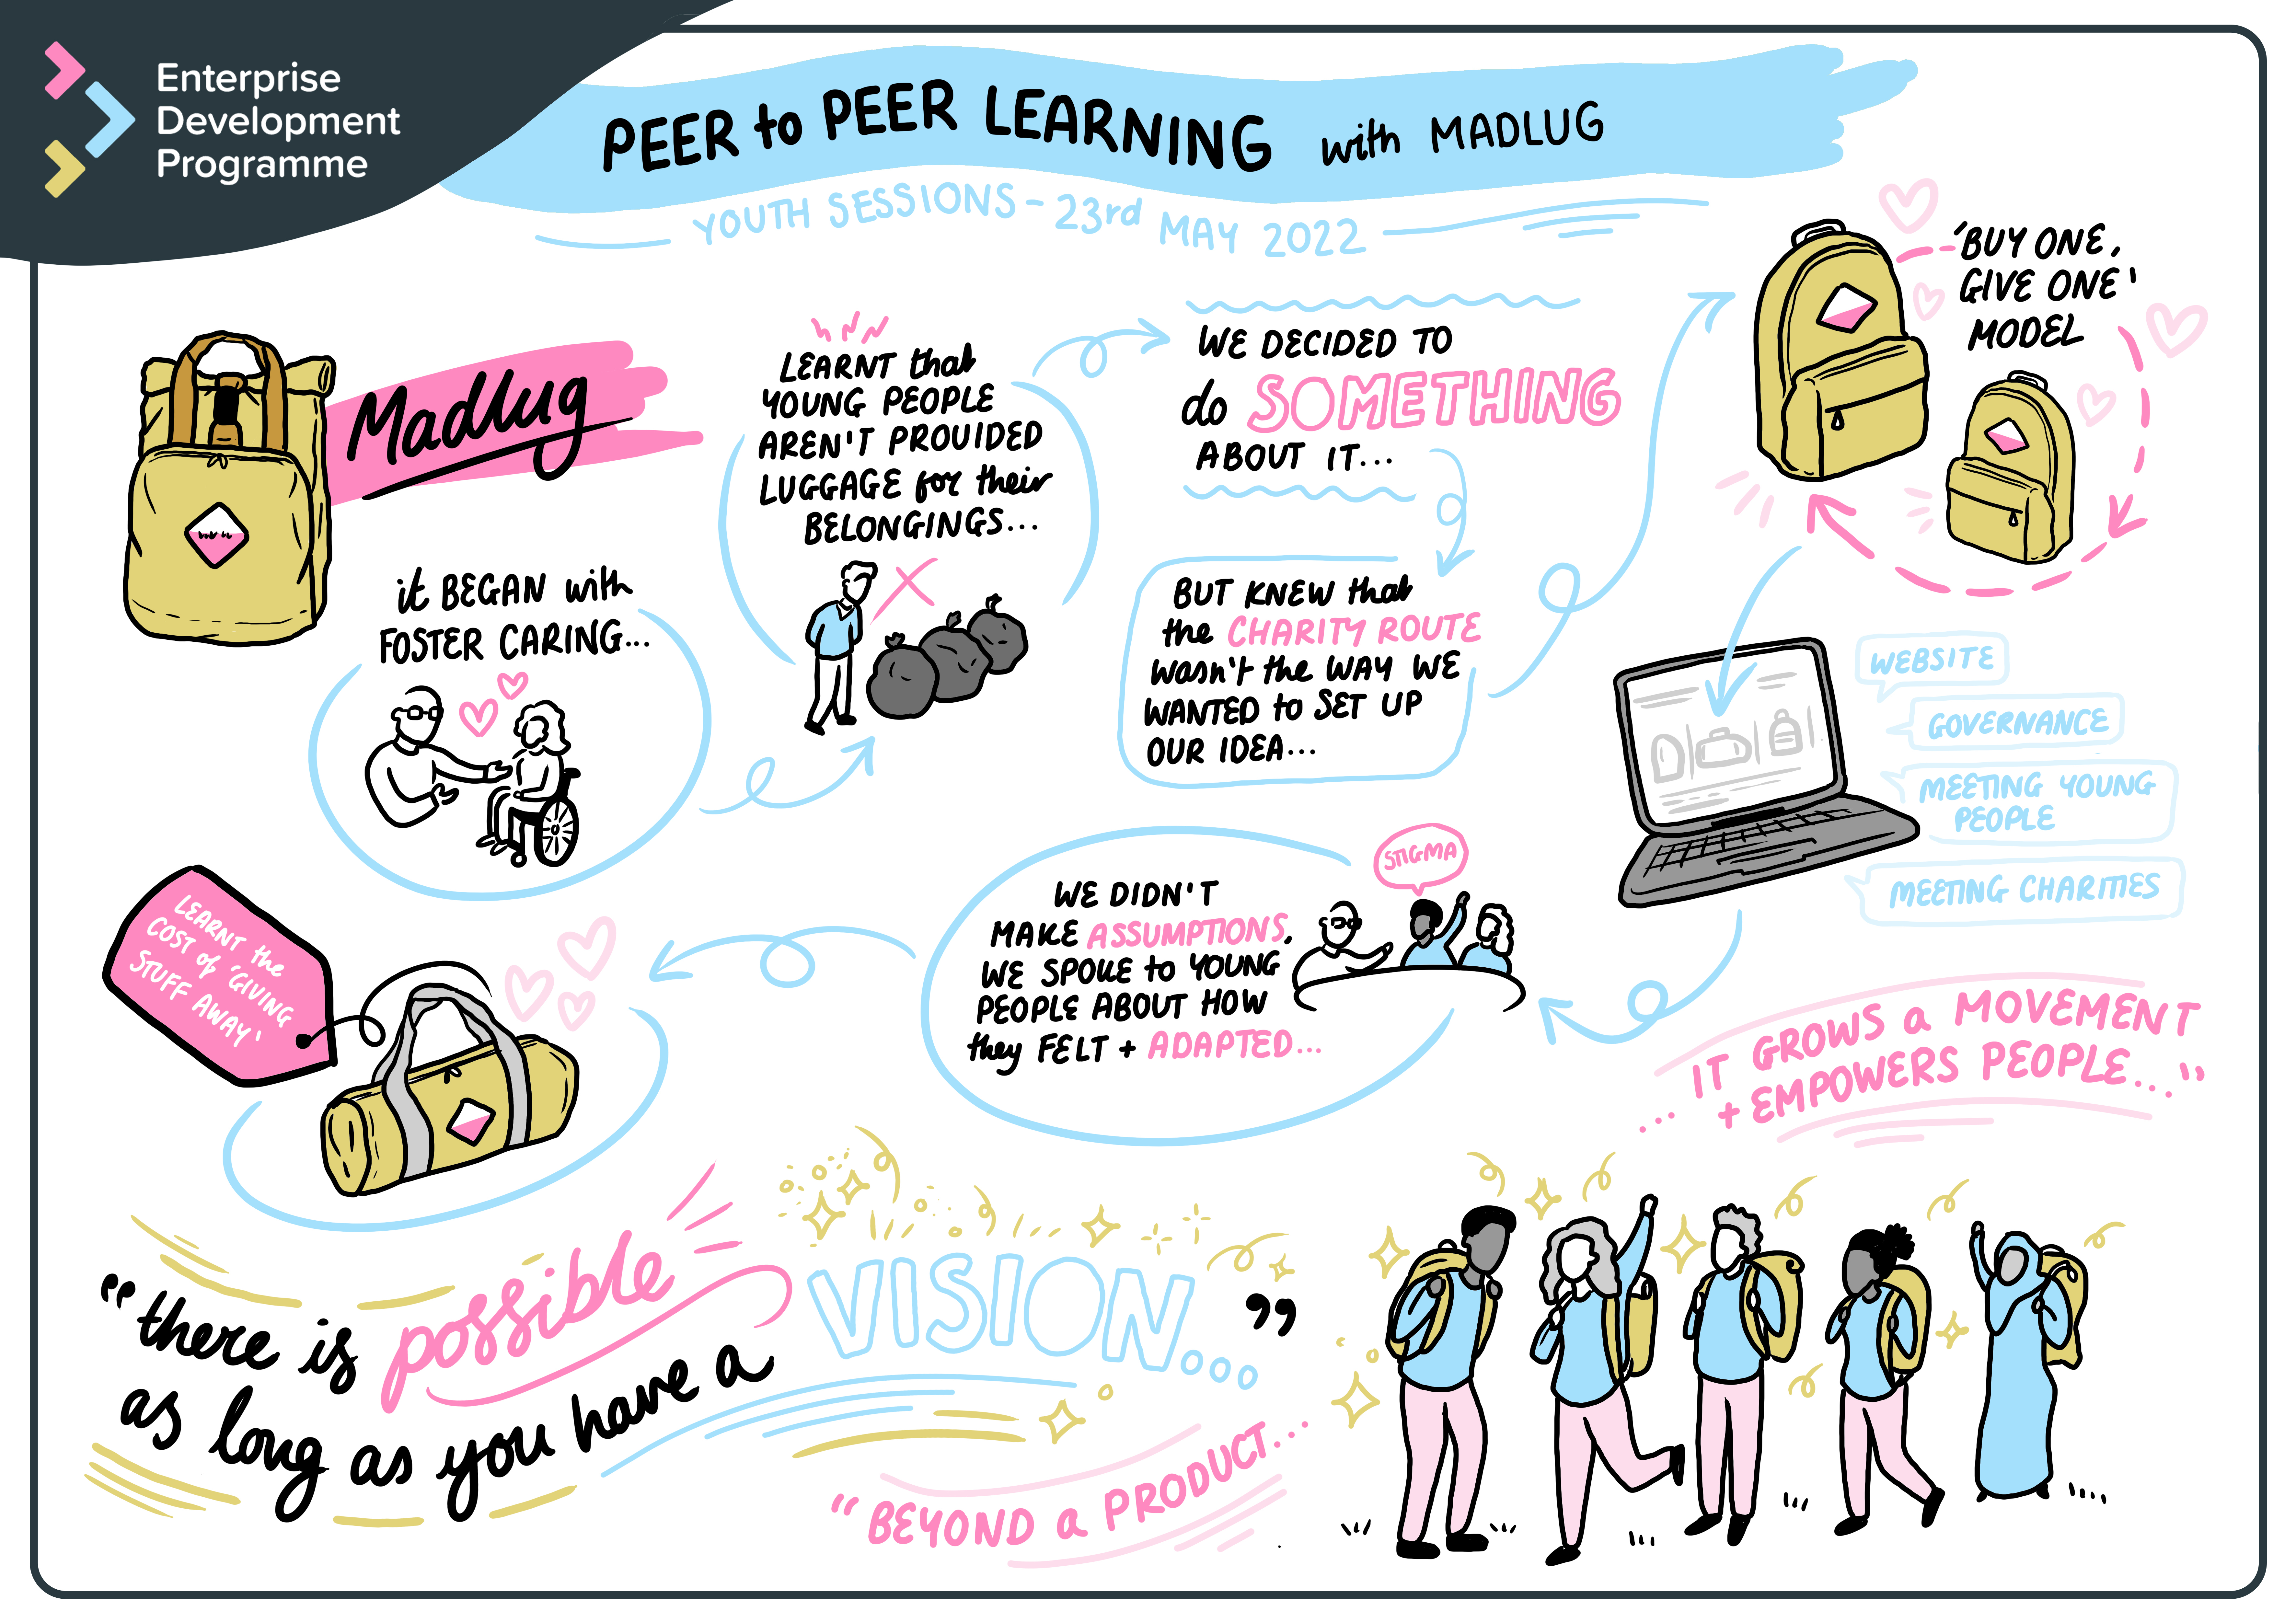 Enterprise
Development
Programme
PEER to PEER LEARNING with MADLUG
YOUTH SESSIONS - 23rd MAY 2022
Madlug
it BEGAN with
FOSTER CARING...
LEARNT that
YOUNG PEOPLE
AREN'T PROVIDED
LUGGAGE for their
BELONGINGS...
WE DECIDED TO
do SOMETHING
ABOUT IT...
BUT KNEW that
the CHARITY ROUTE
wasn't the WAY WE
WANTED to SET UP
OUR IDEA...
'BUY ONE,
GIVE ONE'
MODEL
WEBSITE
GOVERNANCE
MEETING YOUNG
PEOPLE
MEETING CHARITIES
STIGMA
WE DIDN'T
MAKE ASSUMPTIONS,
WE SPOKE to YOUNG
PEOPLE ABOUT HOW
they FELT + ADAPTED...
LEARNT the
COST of 'GIVING
STUFF AWAY'
"there is possible
as long as you have a
VISION... "
"BEYOND a PRODUCT...
... IT GROWS a MOVEMENT
+ EMPOWERS PEOPLE..."